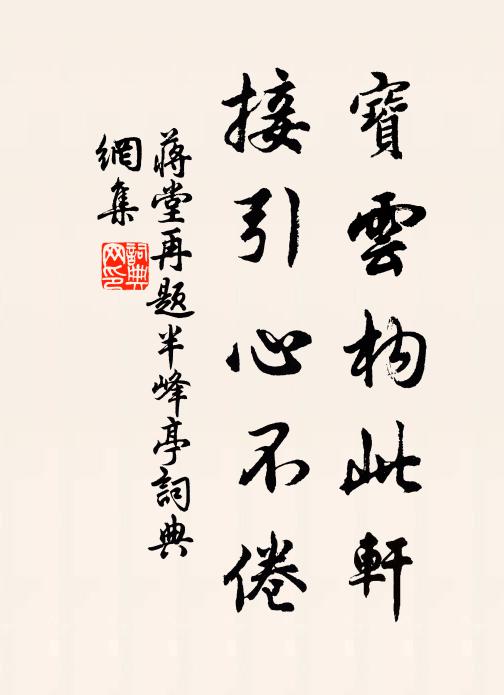 寶雲构此軒
接引心不倦
蔣堂再题半峰亭詞典
網集
詞典網印